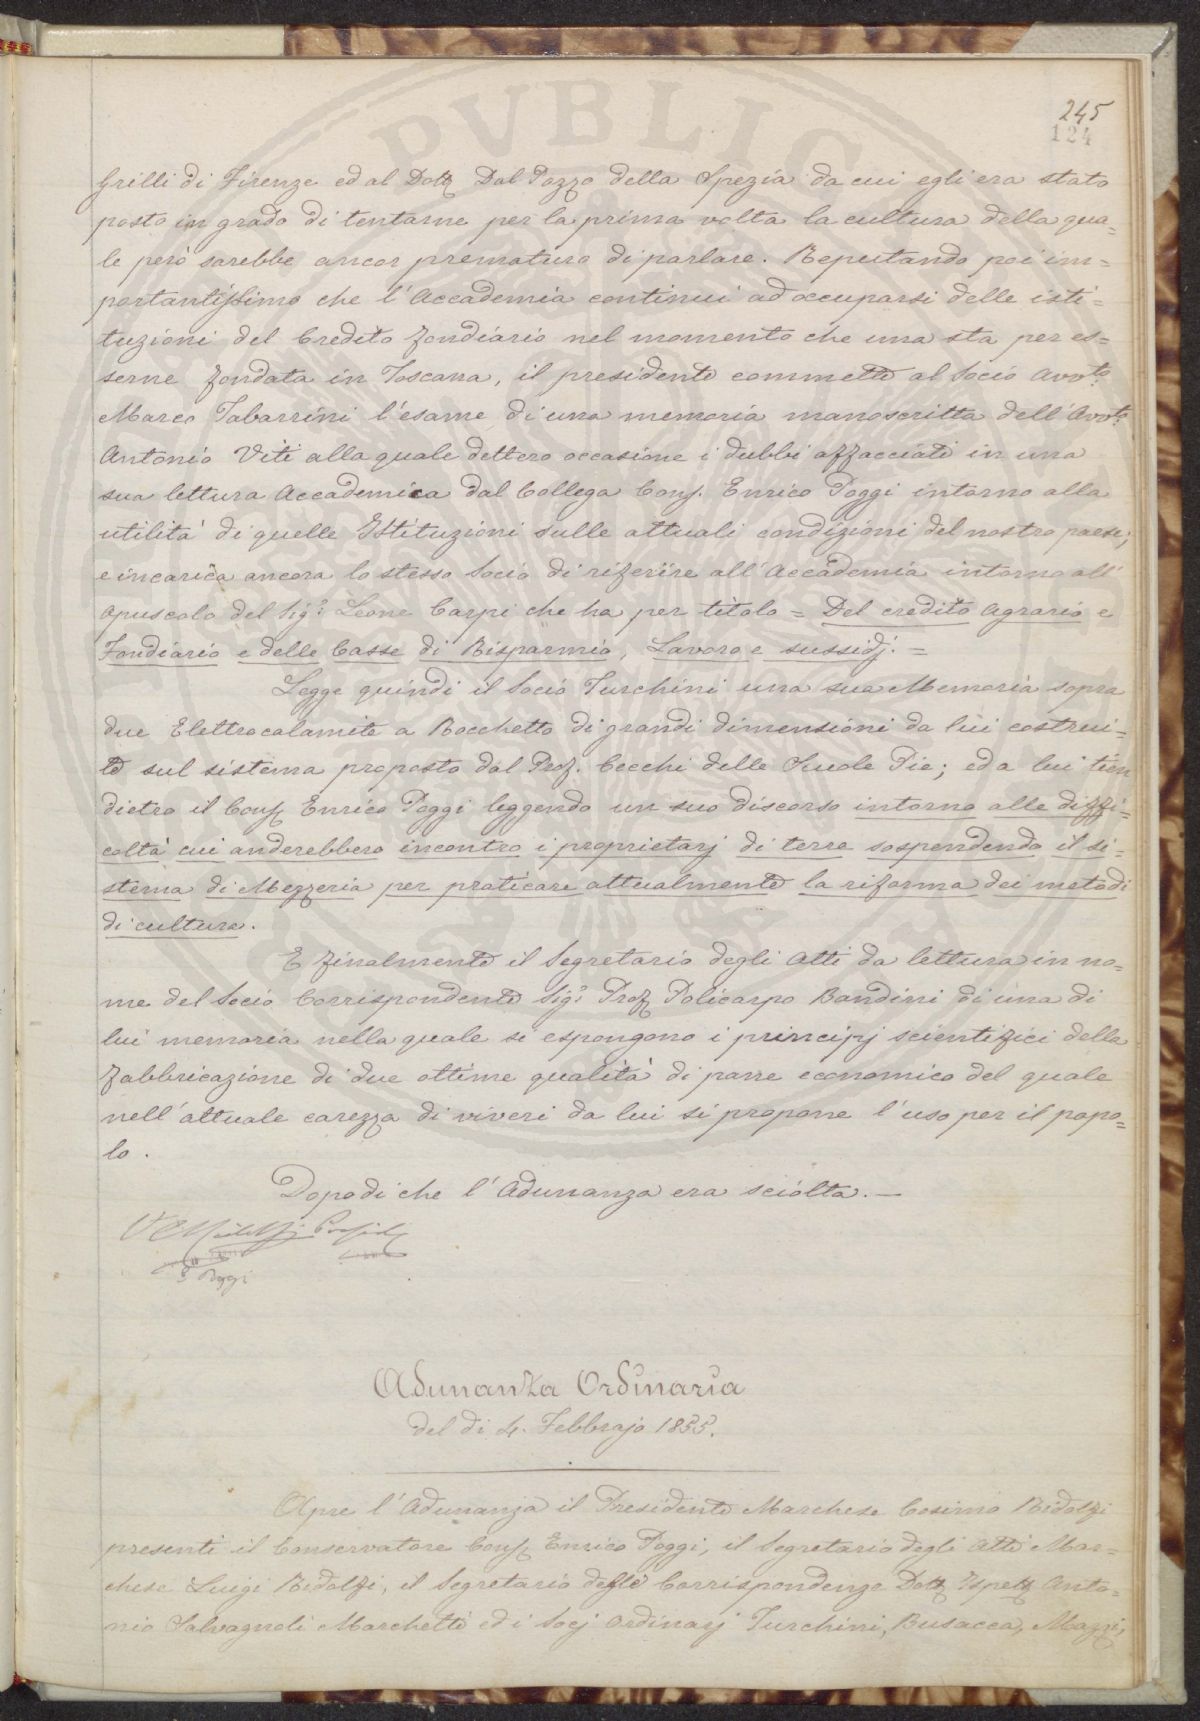 245
124
PVBLIC
Grilli di Firenze ed al Dott Dal Pozzo della Spezia da cui egli era stato
posto in grado di tentarne per la prima volta la cultura della qua=
le però sarebbe ancor prematuro di parlare. Reputando poi im=
portantissimo che l'Accademia continui ad occuparsi delle isti=
tuzioni del Credito fondiario nel momento che una sta per es=
serne fondata in Toscana, il presidente commette al Socio Avvto.
Marco Tabarrini l'esame di una memoria manoscritta dell'Avvto.
Antonio Viti alla quale dettero occasione i dubbi affacciati in una
sua lettura Accademica dal Collega Cons. Enrico Poggi intorno alla
utilità di quelle Istituzioni sulle attuali condizioni del nostro paese;
e incarica ancora lo stesso Socio di riferire all'Accademia intorno all'
opuscolo del Sig: Leone Carpi che ha per titolo = Del credito Agrario e
Fondiario e delle Casse di Risparmio, Lavoro e sussidj. =
Legge quindi il Socio Turchini una sua Memoria sopra
due Elettrocalamite a Rocchetto di grandi dimensioni da lui costrui=
te sul sistema proposto dal Prof. Cecchi delle Scuole Pie; ed a lui tien
dietro il Cons Enrico Poggi leggendo un suo discorso intorno alle diffi=
coltà cui anderebbero incontro i proprietarj di terre sospendendo il si=
stema di Mezzeria per praticare attualmente la riforma dei metodi
di cultura.
E finalmente il Segretario degli Atti da lettura in no=
me del Socio Corrispondente Sig: Prof Policarpo Bandini di una di
lui memoria nella quale si espongono i principj scientifici della
fabbricazione di due ottime qualità di pane economico del quale
nell'attuale carezza di viveri da lui si propone l'uso per il popo=
lo.
Dopo di che l'Adunanza era sciolta. —
E Poggi
Adunanza Ordinaria
del di 4. Febbrajo 1855.
Apre l'Adunanza il Presidente Marchese Cosimo Ridolfi
presenti il Conservatore Cons Enrico Poggi, il Segretario degli Atti Mar=
chese Luigi Ridolfi, il Segretario delle Corrispondenze Dott Ispett Anto=
nio Salvagnoli Marchetti ed i Socj Ordinarj Turchini, Busacca, Mazzi,